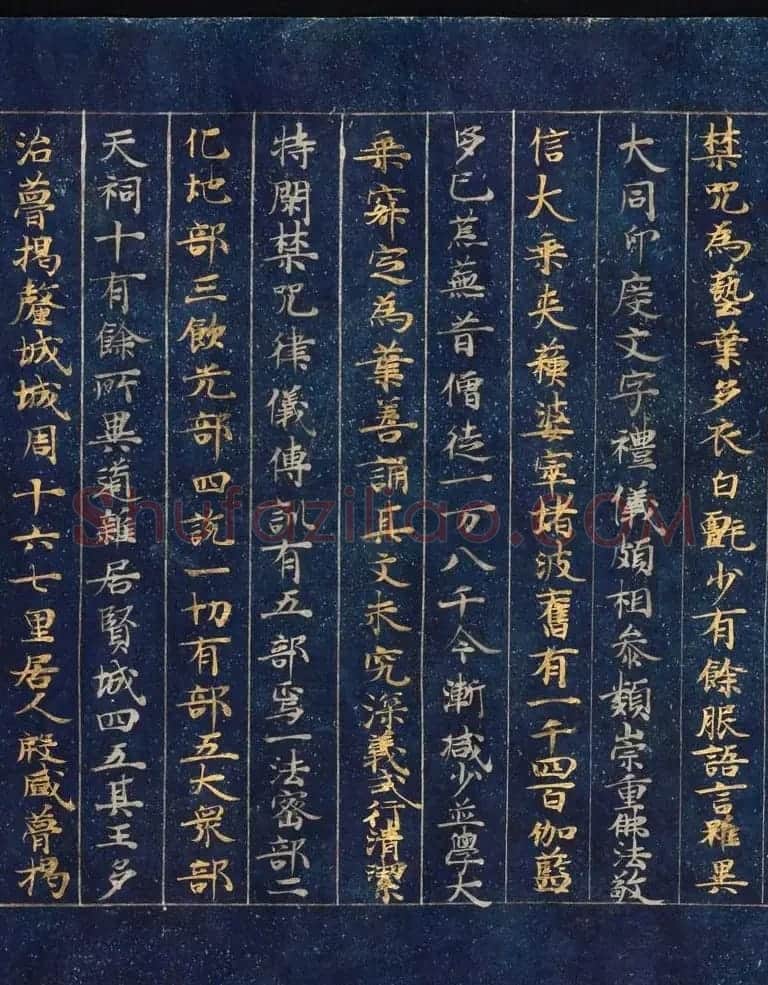 禁咒為藝業多衣白㲲少有餘服語言雖異
大同印度文字禮儀頗相参類崇重佛法敬
信大乗夾蘓婆窣堵波舊有一千四百伽藍
多已蕉蕪昔僧徒一万八千今漸减少並學大
乗寂定為業善誦其文未究深義式行清潔
特閑禁咒律儀傳訓有五部焉一法密部二
化地部三飲光部四說一切有部五大衆部
天祠十有餘所異道雜居賢城四五其王多
治瞢揭釐城城周十六七里居人殷盛瞢揭
Shufaziliao.COM